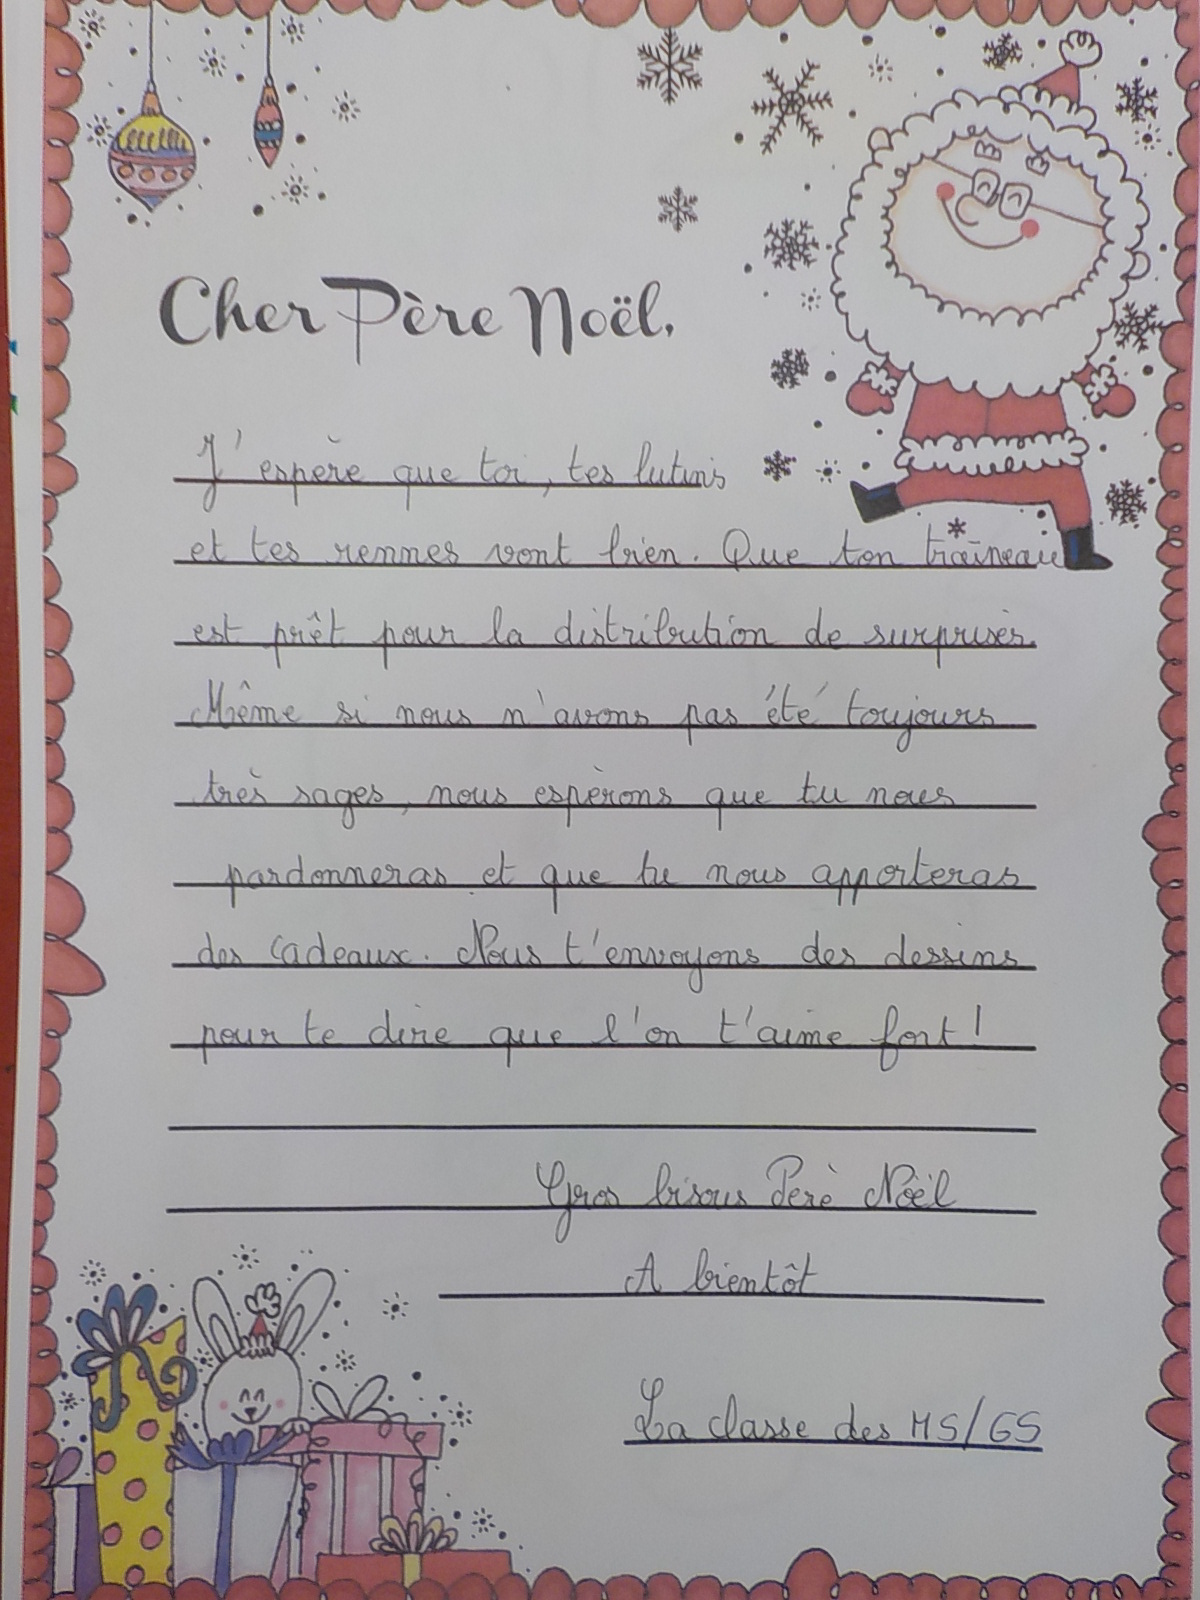 Cher Père Noël,
J'espère que toi, tes lutins
et tes rennes vont bien. Que ton traîneau
est prêt pour la distribution de surprises.
Même si nous n'avons pas été toujours
très sages, nous espèrons que tu nous
pardonneras et que tu nous apporteras
des cadeaux. Nous t'envoyons des dessins
pour te dire que l'on t'aime fort!
Gros bisous Père Noël
A bientôt
La classe des MS/GS